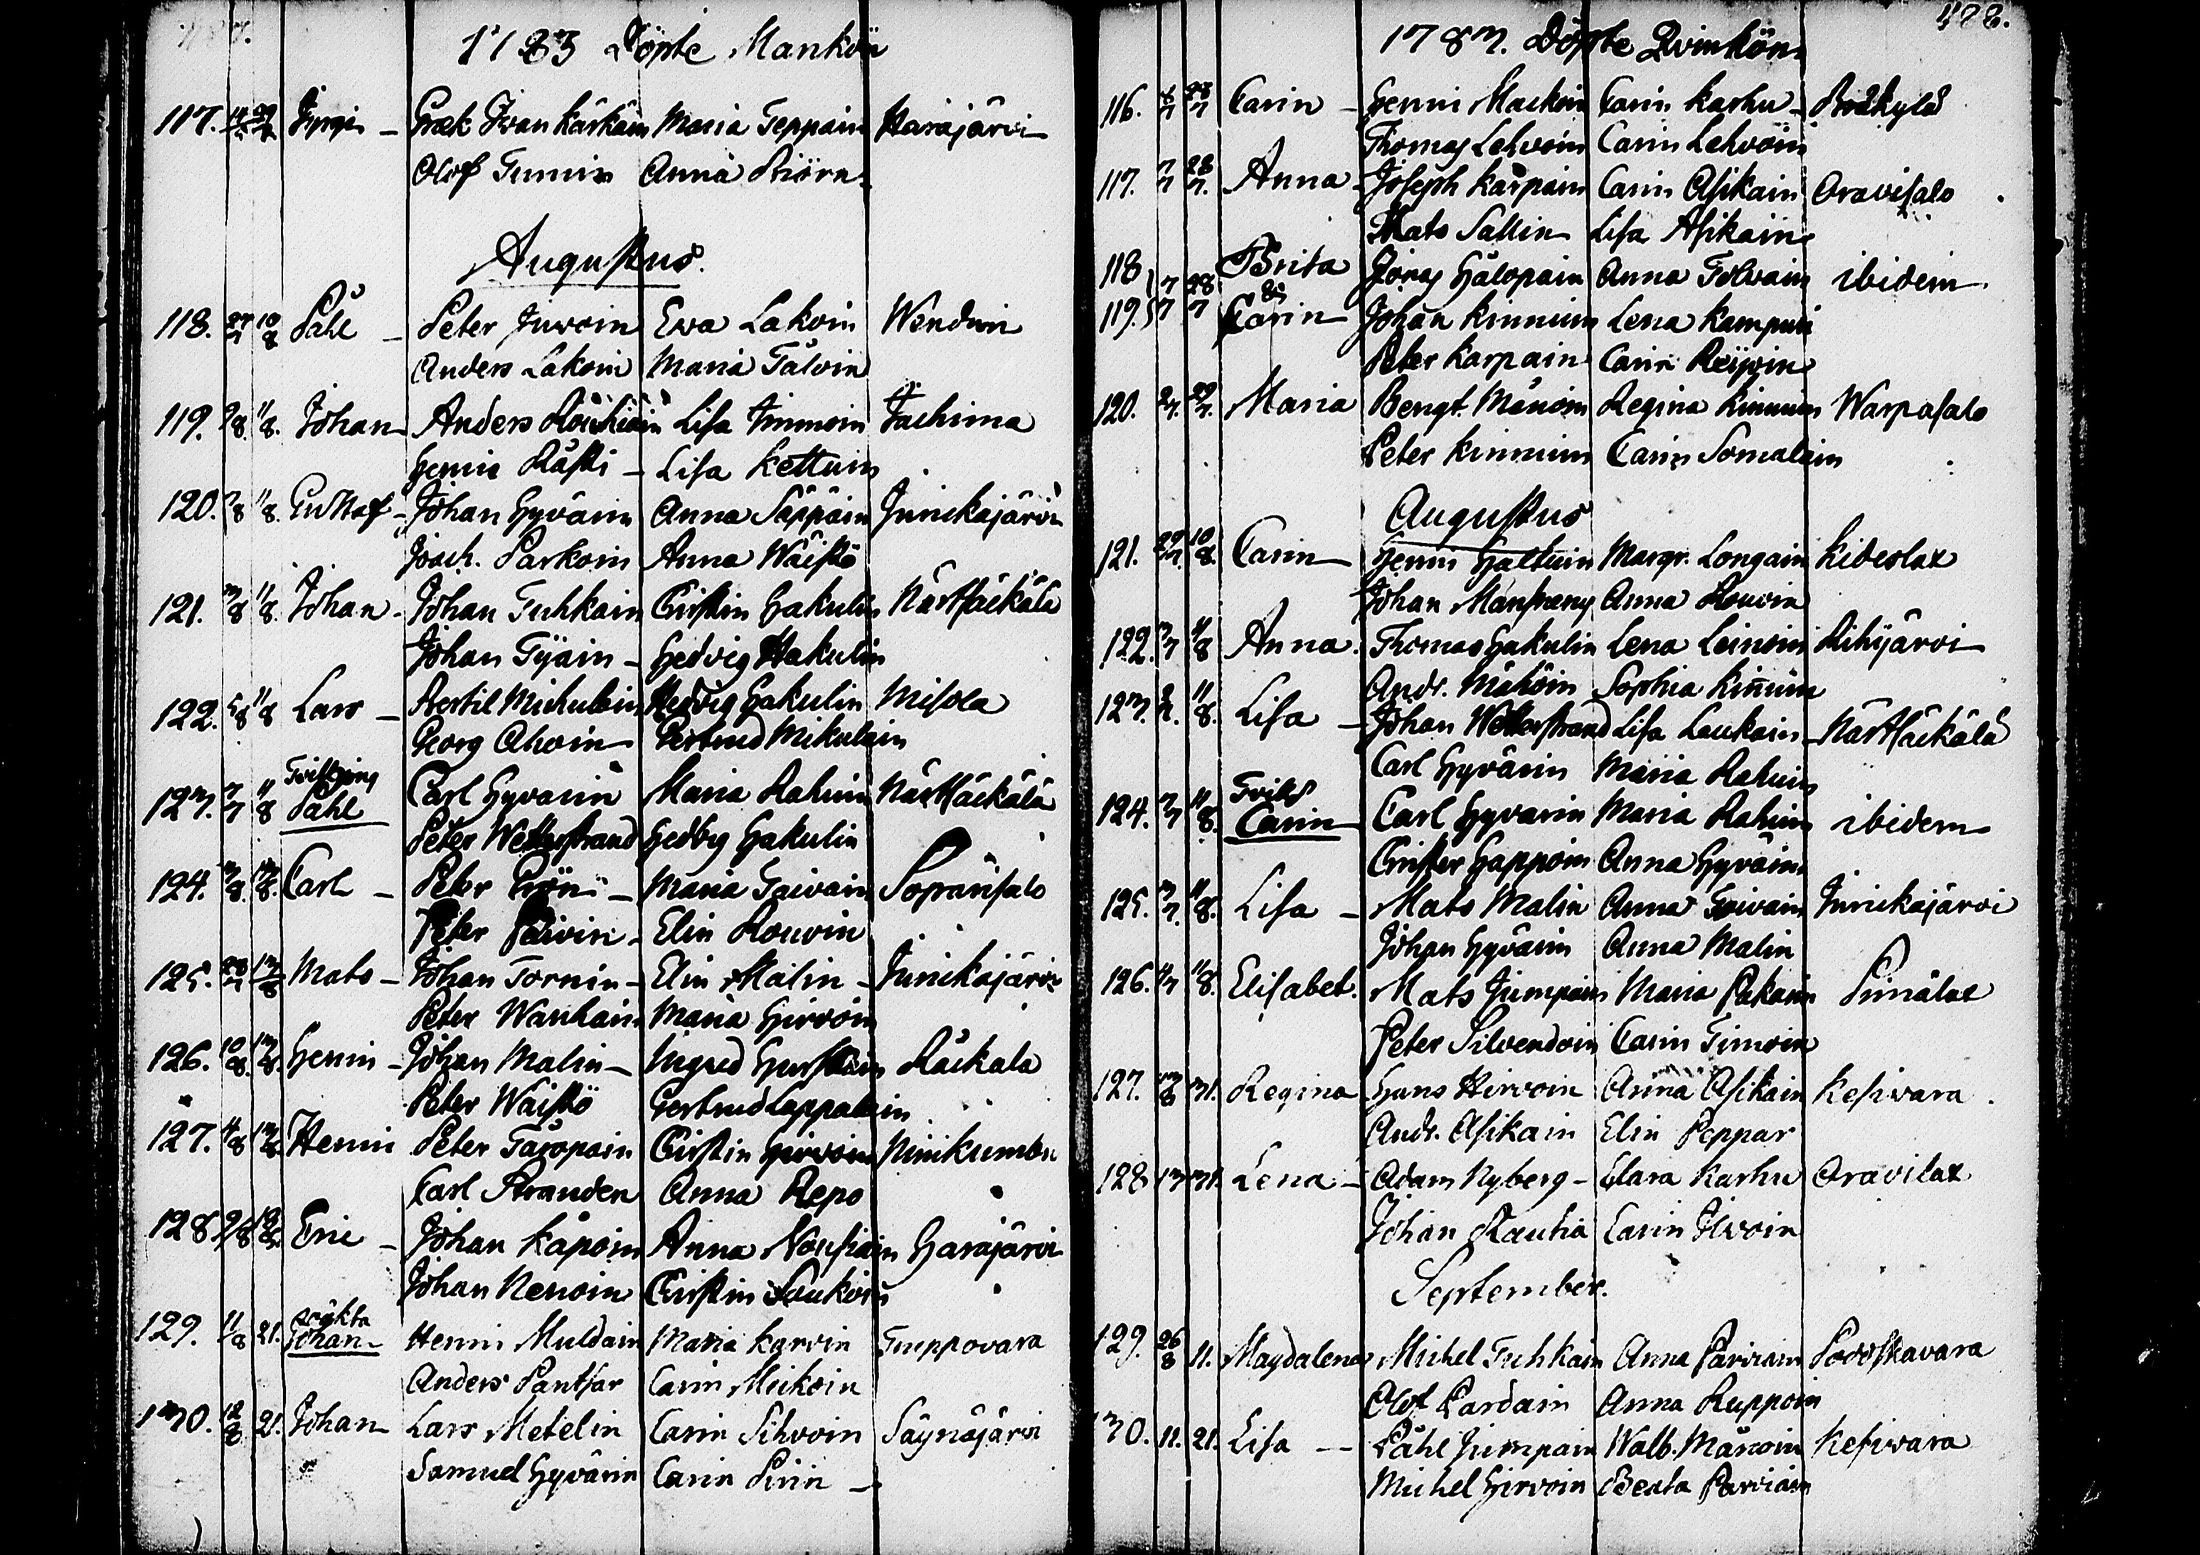 1783 Döpte Mankön
117. Jyrgin – Græk Ivan Kärkäin Maria Teppain Harajärvi
Olof Tumin Anna Biörn
Augustus.
118. 27/7 10/8 Påhl – Peter Juvoin Eva Lakoin
Anders Lakoin Maria Tålvin
119. 11/8. Johan Anders Lisa Immoin
Henric Räsk – Lisa Kettuin
120. 11/8. Gustaf – Johan Hyvärin Anna Säppäin Jurickajärvi
Joach. Parkoin Anna Wäistö
121. 11/8. Johan – Johan Tuhkain Cristin Hakulin
Johan Tijain – Hedvig Hakulin
122. 5/8 11/8 Lars – Bertil Mickulain Hedvig Hakulin Misola
Georg Ahoin Gertrud Mikulain
Tvilling
123. 7/7 11/8 Påhl Carl Hyvärin Maria Rahuin
Peter Wetterstrand Hedvig Hakulin
124. 13/8. Carl – Peter Grön – Maria Taivain Sopansalo
Peter Päivin – Elin Rouvin
125. 28/7 13/8 Mats – Johan Tornin – Elin Malin – Jurickajärvi
Peter Wauhain Maria Hirvoin
126. 10/8. 13/8. Henric – Johan Malin – Ingred Räckälä
Peter Wäistö Gertrud Lappalain
127. 4/8 13/8 Henric Peter Taropain Cristin Hirvoin Ninikumbu
Carl Stranden Anna Repo
128 9/8 19/8. Eric – Johan Kapoin Anna Nousiain Harajärvi
Johan Nenoin Cristin Laukoin
oäkta
129. 11/8 21. Johan – Henric Muldain Maria Karvin Tuppovara
Anders Pantsar Carin Meikoin
130. 12/8 21. Johan Lars Metelin Carin Sihvoin Säynäjärvi
Samuel Hyvärin Carin Pirin –
478.
1783. Döpte Qvinkön
116. 6/7 28/7 Carin – Henric Mackoin Carin Karhu – Bräkylä
Thomas Lehvoin Carin Lehvoin
117. 7/7 28/7. Anna – Joseph Karpain Carin Asikain Oravisalo
Mats Sallin Lisa Asikain
118 Brita Jöran Halopain Anna Tolvain ibidem
119. 7/7 28/7 & Carin Johan Kinnuin Lena Kampuri
Peter Karpain Carin Reijoin
120. 29/7. Maria Bengt Mänoin Regina Kinnuin Warpasalo
Peter Kinnuin Carin Somalain
Augustus
121. 29/7. 10/8. Carin – Henric Hattuin Margr. Longain Kideslax
Johan Anna Rouvin
122. 3/7 11/8 Anna. Thomas Hakulin Lena Leinoin Rihijärvi
Andr. Mähöin Sophia Kiñuin
123. 11/8. Lisa – Johan Wetterstrand Lisa Laukain –
Carl Hyvärin Maria Rahuin
Tvill
124. 7/7 11/8. Carin Carl Hyvärin Maria Rahuin ibidem
Crister Happoin Anna Hyväin
125. 11/8. Lisa – Mats Malin Anna Taivain Jurickajärvi
Johan Hyvärin Anna Malin
126. 11/8. Elisabet. Mats Jumpain Maria Pakain Pimälax
Peter Silvendoin Carin Timoin
127. 13/8 31. Regina Hans Hirvoin Anna Asikain Kesivara
Andr. Asikain Elin Peppar
128 13 31. Lena – Adam Nyberg – Clara Karhu Oravilax
Johan Rautia Carin Ilvoin
September.
129. 26/8 11. Magdalena Michel Tuhkain Anna Parviain
Olof Pardain Anna Ruppoin
130. 11. 21. Lisa – – Påhl Jumpain Walb. Mänoin Kesivara
Michel Hirvoin Beata Parviain